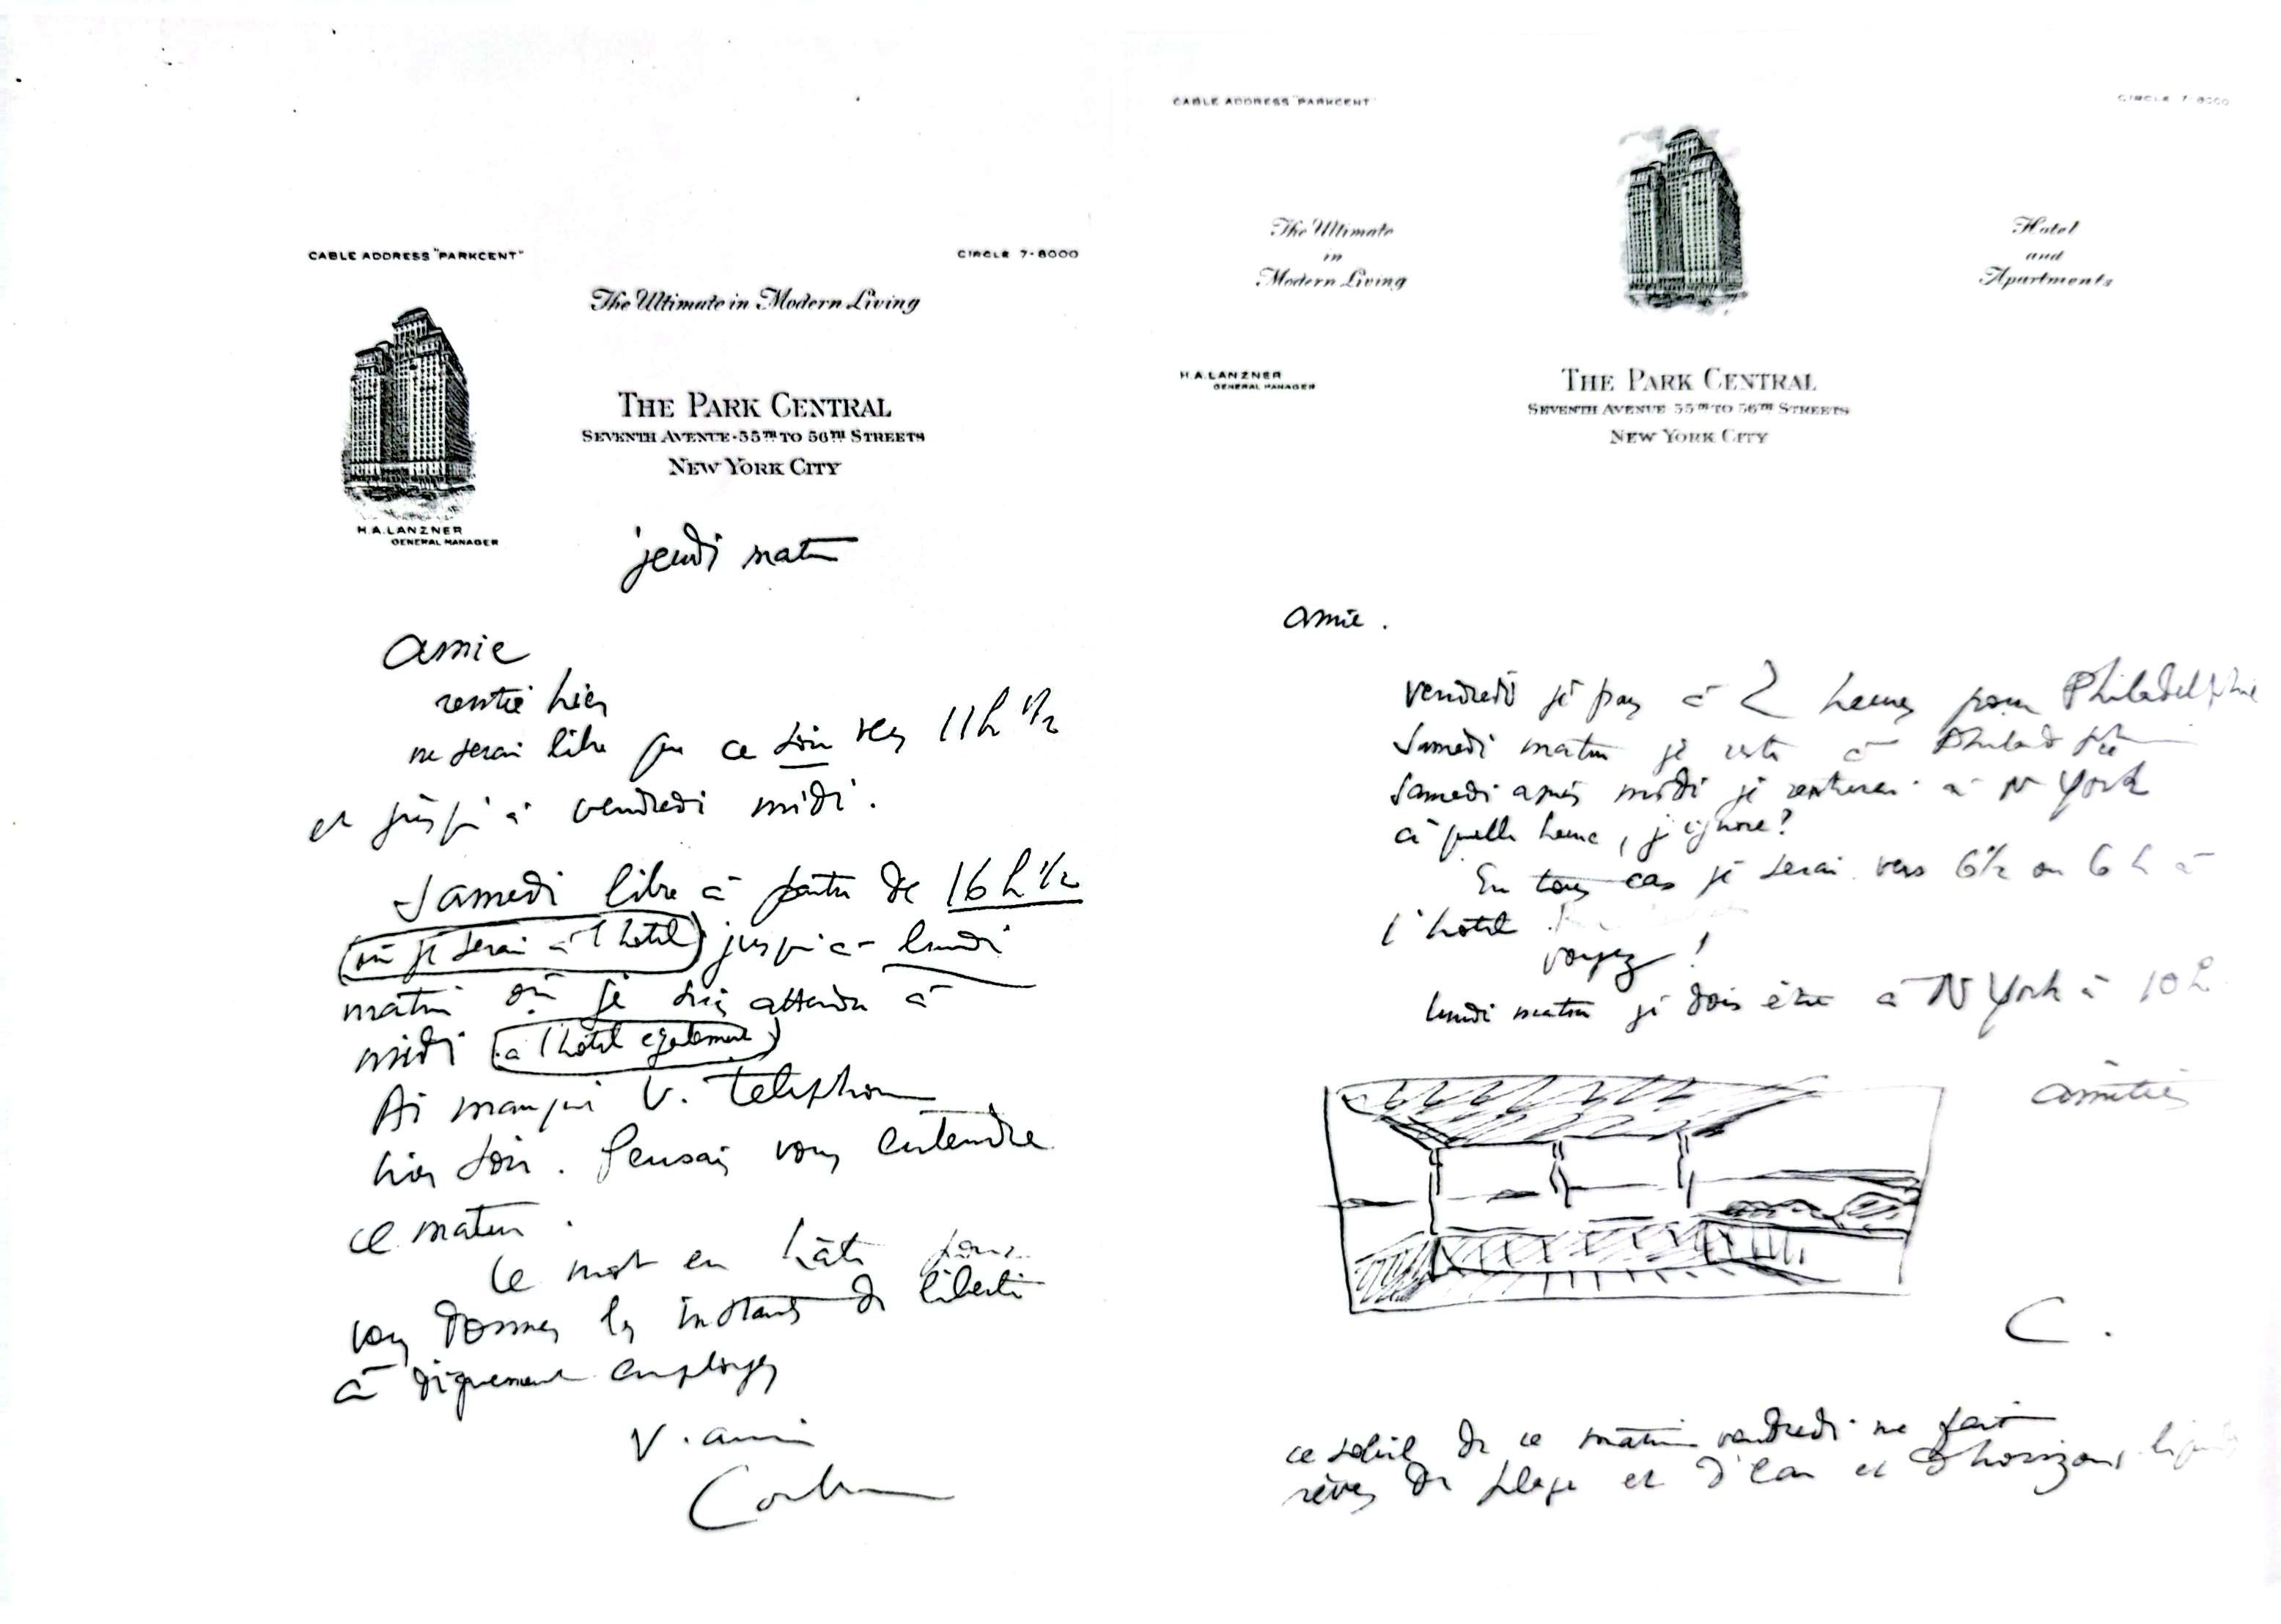 CABLE ADDRESS "PARKCENT"
CIRCLE 7-8000
The Ultimate in Modern Living
THE PARK CENTRAL
SEVENTH AVENUE·55TH TO 56TH STREETS
NEW YORK CITY
H.A. LANZNER
GENERAL MANAGER
jeudi matin
amie
rentré hier
ne serai libre que ce soir vers 11h 1/2
et jusqu'à vendredi midi.
Samedi libre à partir de 16 h 1/2
(où je serai à l'hôtel) jusqu'à lundi
matin où je suis attendu à
midi (à l'hôtel également)
Ai manqué V. téléphone
hier soir. Pensais vous entendre
ce matin.
Ce mot en hâte pour
vous donner les instants de liberté
à dignement employer
V. ami
Corbu
CABLE ADDRESS "PARKCENT"
CIRCLE 7-8000
The Ultimate
in
Modern Living
Hotel
and
Apartments
H.A. LANZNER
GENERAL MANAGER
THE PARK CENTRAL
SEVENTH AVENUE 55TH TO 56TH STREETS
NEW YORK CITY
amie.
vendredi je pars à 2 heures pour Philadelphie
Samedi matin je reste à Philadelphie
Samedi après midi je rentrerai à N York
à quelle heure, j'ignore?
En tous cas je serai vers 6 ou 6 h à
l'hôtel
voyez!
lundi matin je dois être à N York à 10h
amitiés
C.
ce soleil de ce matin vendredi me fait
rêver de plage et d'eau et d'horizons